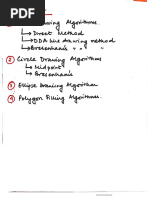 ① Drawing Algorithms
↳ Direct Method
↳ DDA line drawing method
↳ Bresenham's " "
② Circle Drawing Algorithms
↳ Midpoint
↳ Bresenham's
③ Ellipse Drawing Algorithm
④ Polygon Filling Algorithms.